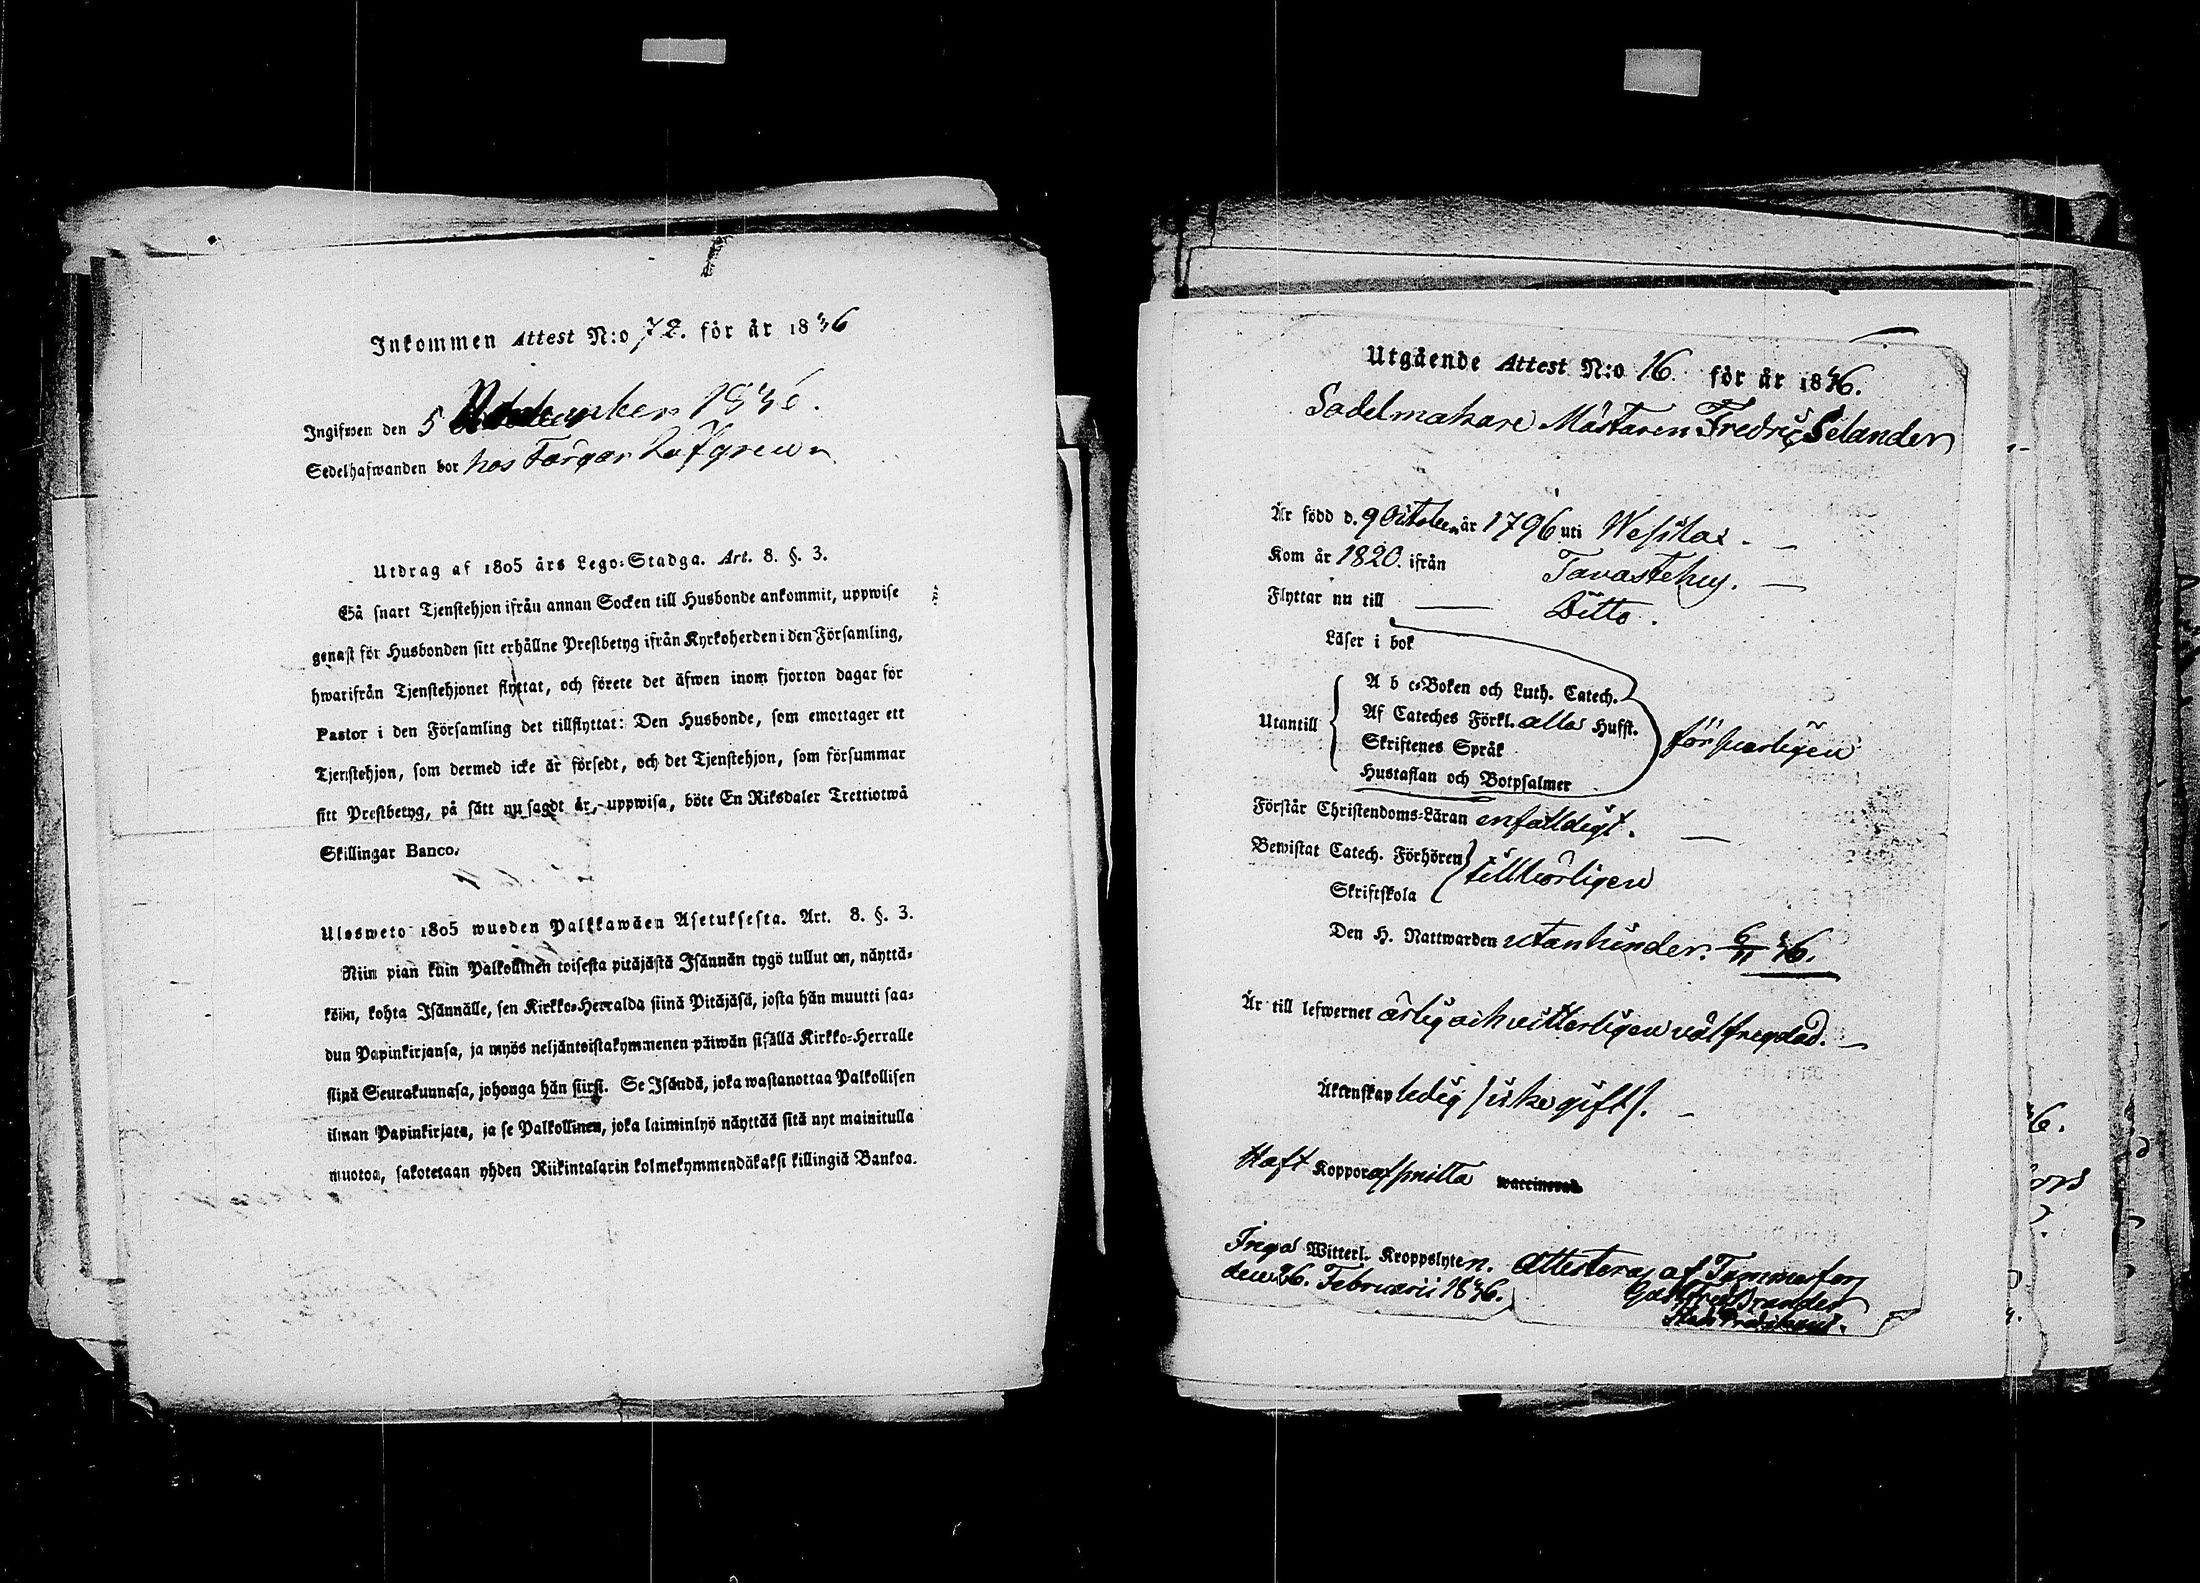 Inkommen Attest N:o 72. för år 1846
Ingifwen den 5 December 1846.
Sedelhafwanden bor hos Färgar Löfgren
Utdrag af 1805 års Lego-Stadga. Art. 8. §. 3.
Så snart Tjenstehjon ifrån annan Socken till Husbonde ankommit, uppwise
genast för Husbonden sitt erhållne Prestbetyg ifrån Kyrkoherden i den Församling,
hwarifrån Tjenstehjonet flyttat, och förete det äfwen inom fjorton dagar för
Pastor i den Församling det tillflyttat: Den Husbonde, som emottager ett
Tjenstehjon, som dermed icke är försedt, och det Tjenstehjon, som försummar
sitt Prestbetyg, på sätt nu sagdt är, uppwisa, böte En Riksdaler Trettiotwå
Skillingar Banco.
Ulosweto 1805 wuoden Palkkawäen Asetuksesta. Art. 8. §. 3.
Niin pian kuin Palkollinen toisesta pitäjästä Isännän tygö tullut on, näyttä-
köön, kohta Isännälle, sen Kirkko-Herralda siinä Pitäjäsä, josta hän muutti saa-
dun Papinkirjansa, ja myös neljäntoistakymmenen päiwän sisällä Kirkko-Herralle
siinä Seurakunnasa, johonga hän siirsi. Se Isändä, joka wastanottaa Palkollisen
ilman Papinkirjata, ja se Palkollinen, joka laiminlyö näyttää sitä nyt mainitulla
muotoa, sakotetaan yhden Riikintalarin kolmekymmendäkaksi killingiä Bankoa.
Utgående Attest N:o 16. för år 1846.
Sadelmakare Mästaren Fredric Selander
Är född d. 9 October år 1796 uti Wesilax.
Kom år 1820. ifrån Tavastehus.
Flyttar nu till Ditto.
Läser i bok
A b c-Boken och Luth. Catech.
Utantill Af Cateches Förkl. alla Hufst. försvarligen
Skriftenes Språk
Hustaflan och Botpsalmer
Förstår Christendoms-Läran enfaldigt.
Bewistat Catech. Förhören tillbörligen
Skriftskola
Den H. Nattwarden utan hinder. 6/11 46.
Är till lefwernet ärlig och vitterligen välfregdad.
Äktenskap ledig /icke gift/.
Haft Kopporaf smitta waccinerad
Inga Witterl. Kroppslyten. Attesteras af Tammerfors
den 26. Februarii 1846. Gustaf Brander